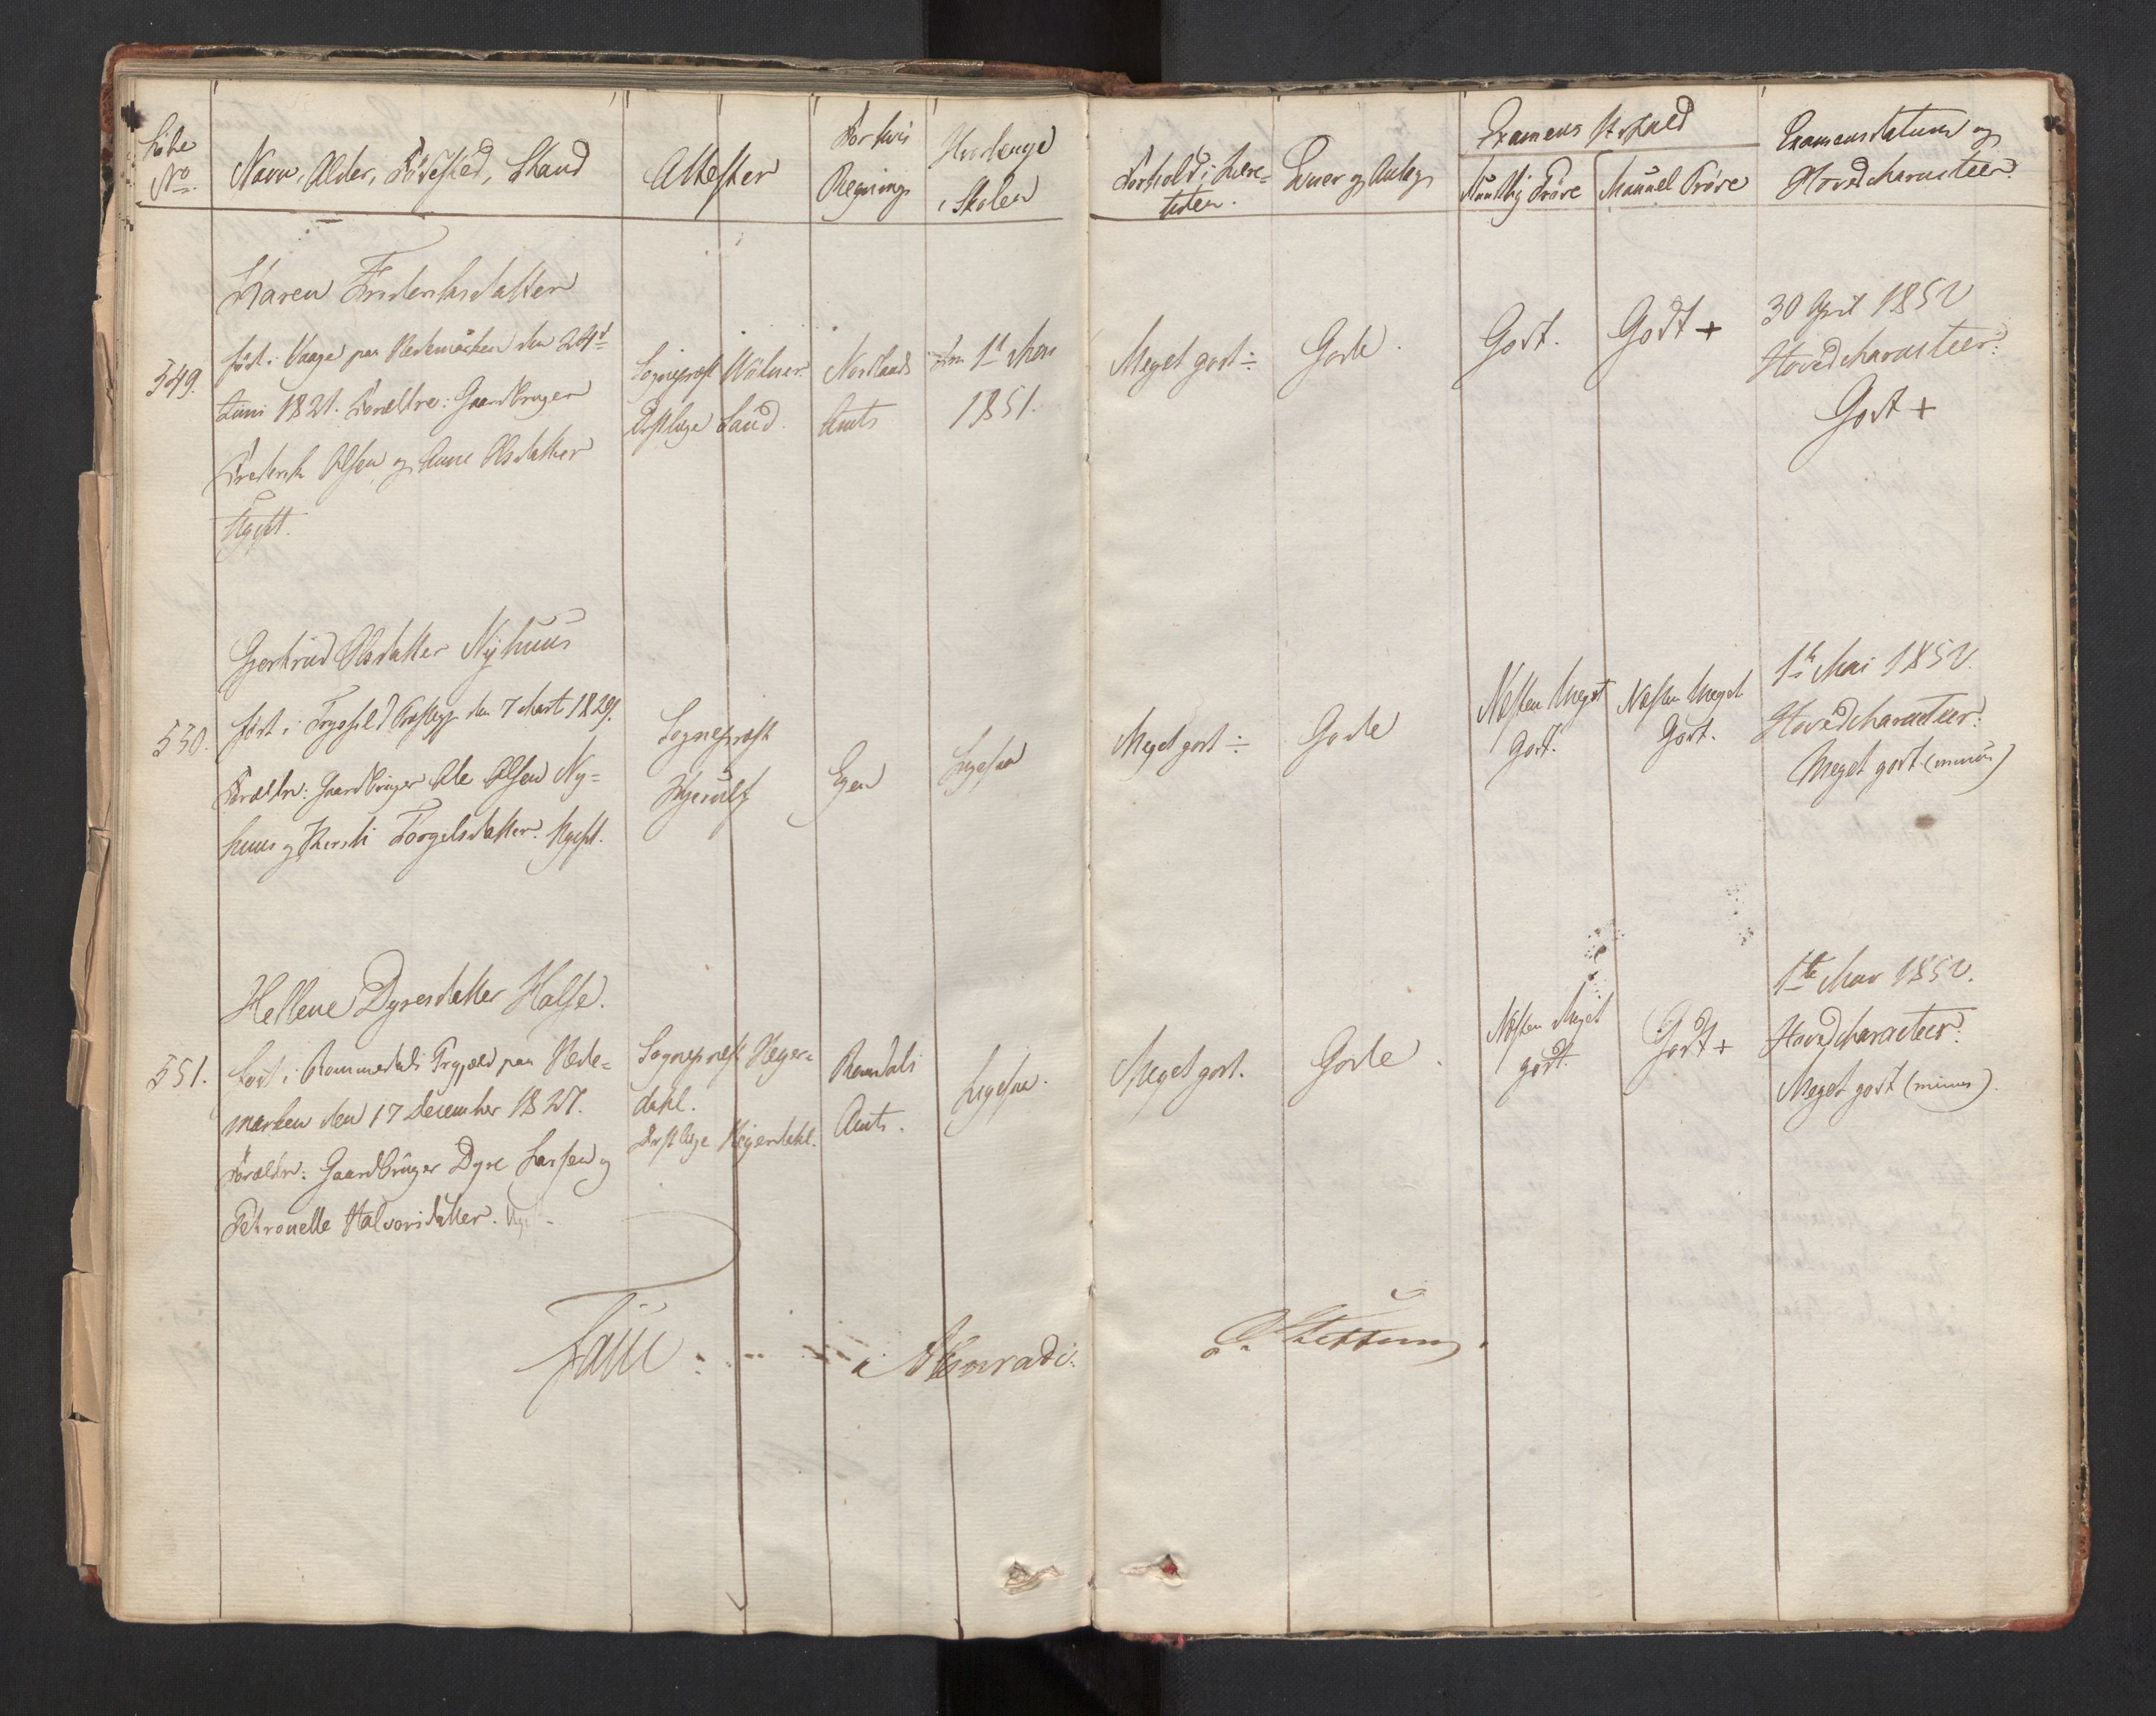 Løbe
No.
Navn, Alder, Fødested, Stand
Attester
For hvis
Regning
Hvorlenge
i Skolen
Forhold i Lære-
tiden.
Evner og Anlæg
Examens Udfald
Mundtlig Prøve
Manuel Prøve
Examensdatum og
Hovedcharacteer.
549.
Karen Frederiksdatter
født i Vaage paa Hedemarken den 24de
Juni 1821. Forældre: Gaardbruger
Frederik Olsen og Anne Olsdatter
Ugift.
Sognepræst
Distlæge Lund.
Nordlands
Amts
1st
1851.
Meget godt ÷
Gode.
Godt.
Godt +
30 April 1852
Hovedcharacteer:
Godt +
550.
Gjertrud Olsdatter Nyhuus
født i Trysild Præstegj. den 7 Mart 1829.
Forældre: Gaardbruger Ole Olsen Ny-
huus og Kersti Torgelsdatter. Ugift.
Sognepræst
Kjerulf
Egen
Ligesaa
Meget godt ÷
Gode
Næsten Meget
Godt.
Næsten Meget
Godt.
1ste Mai 1852.
Hovedcharacteer:
Meget godt (minus)
551.
Hellene Dyresdatter Halse.
født i Rommedals Prgjæld paa Hede-
marken den 17 December 1827.
Forældre: Gaardbruger Dyre Larsen og
Petronelle Halvorsdatter. Ugift.
Sognepræst Heyer-
dahl.
Distlæge Heyerdahl.
Romsdals
Amts.
Ligesaa.
Meget godt.
Gode.
Næsten Meget
godt.
Godt +
1ste Mai 1852.
Hovedcharacteer:
Meget godt (minus).
Faye
Conradi.